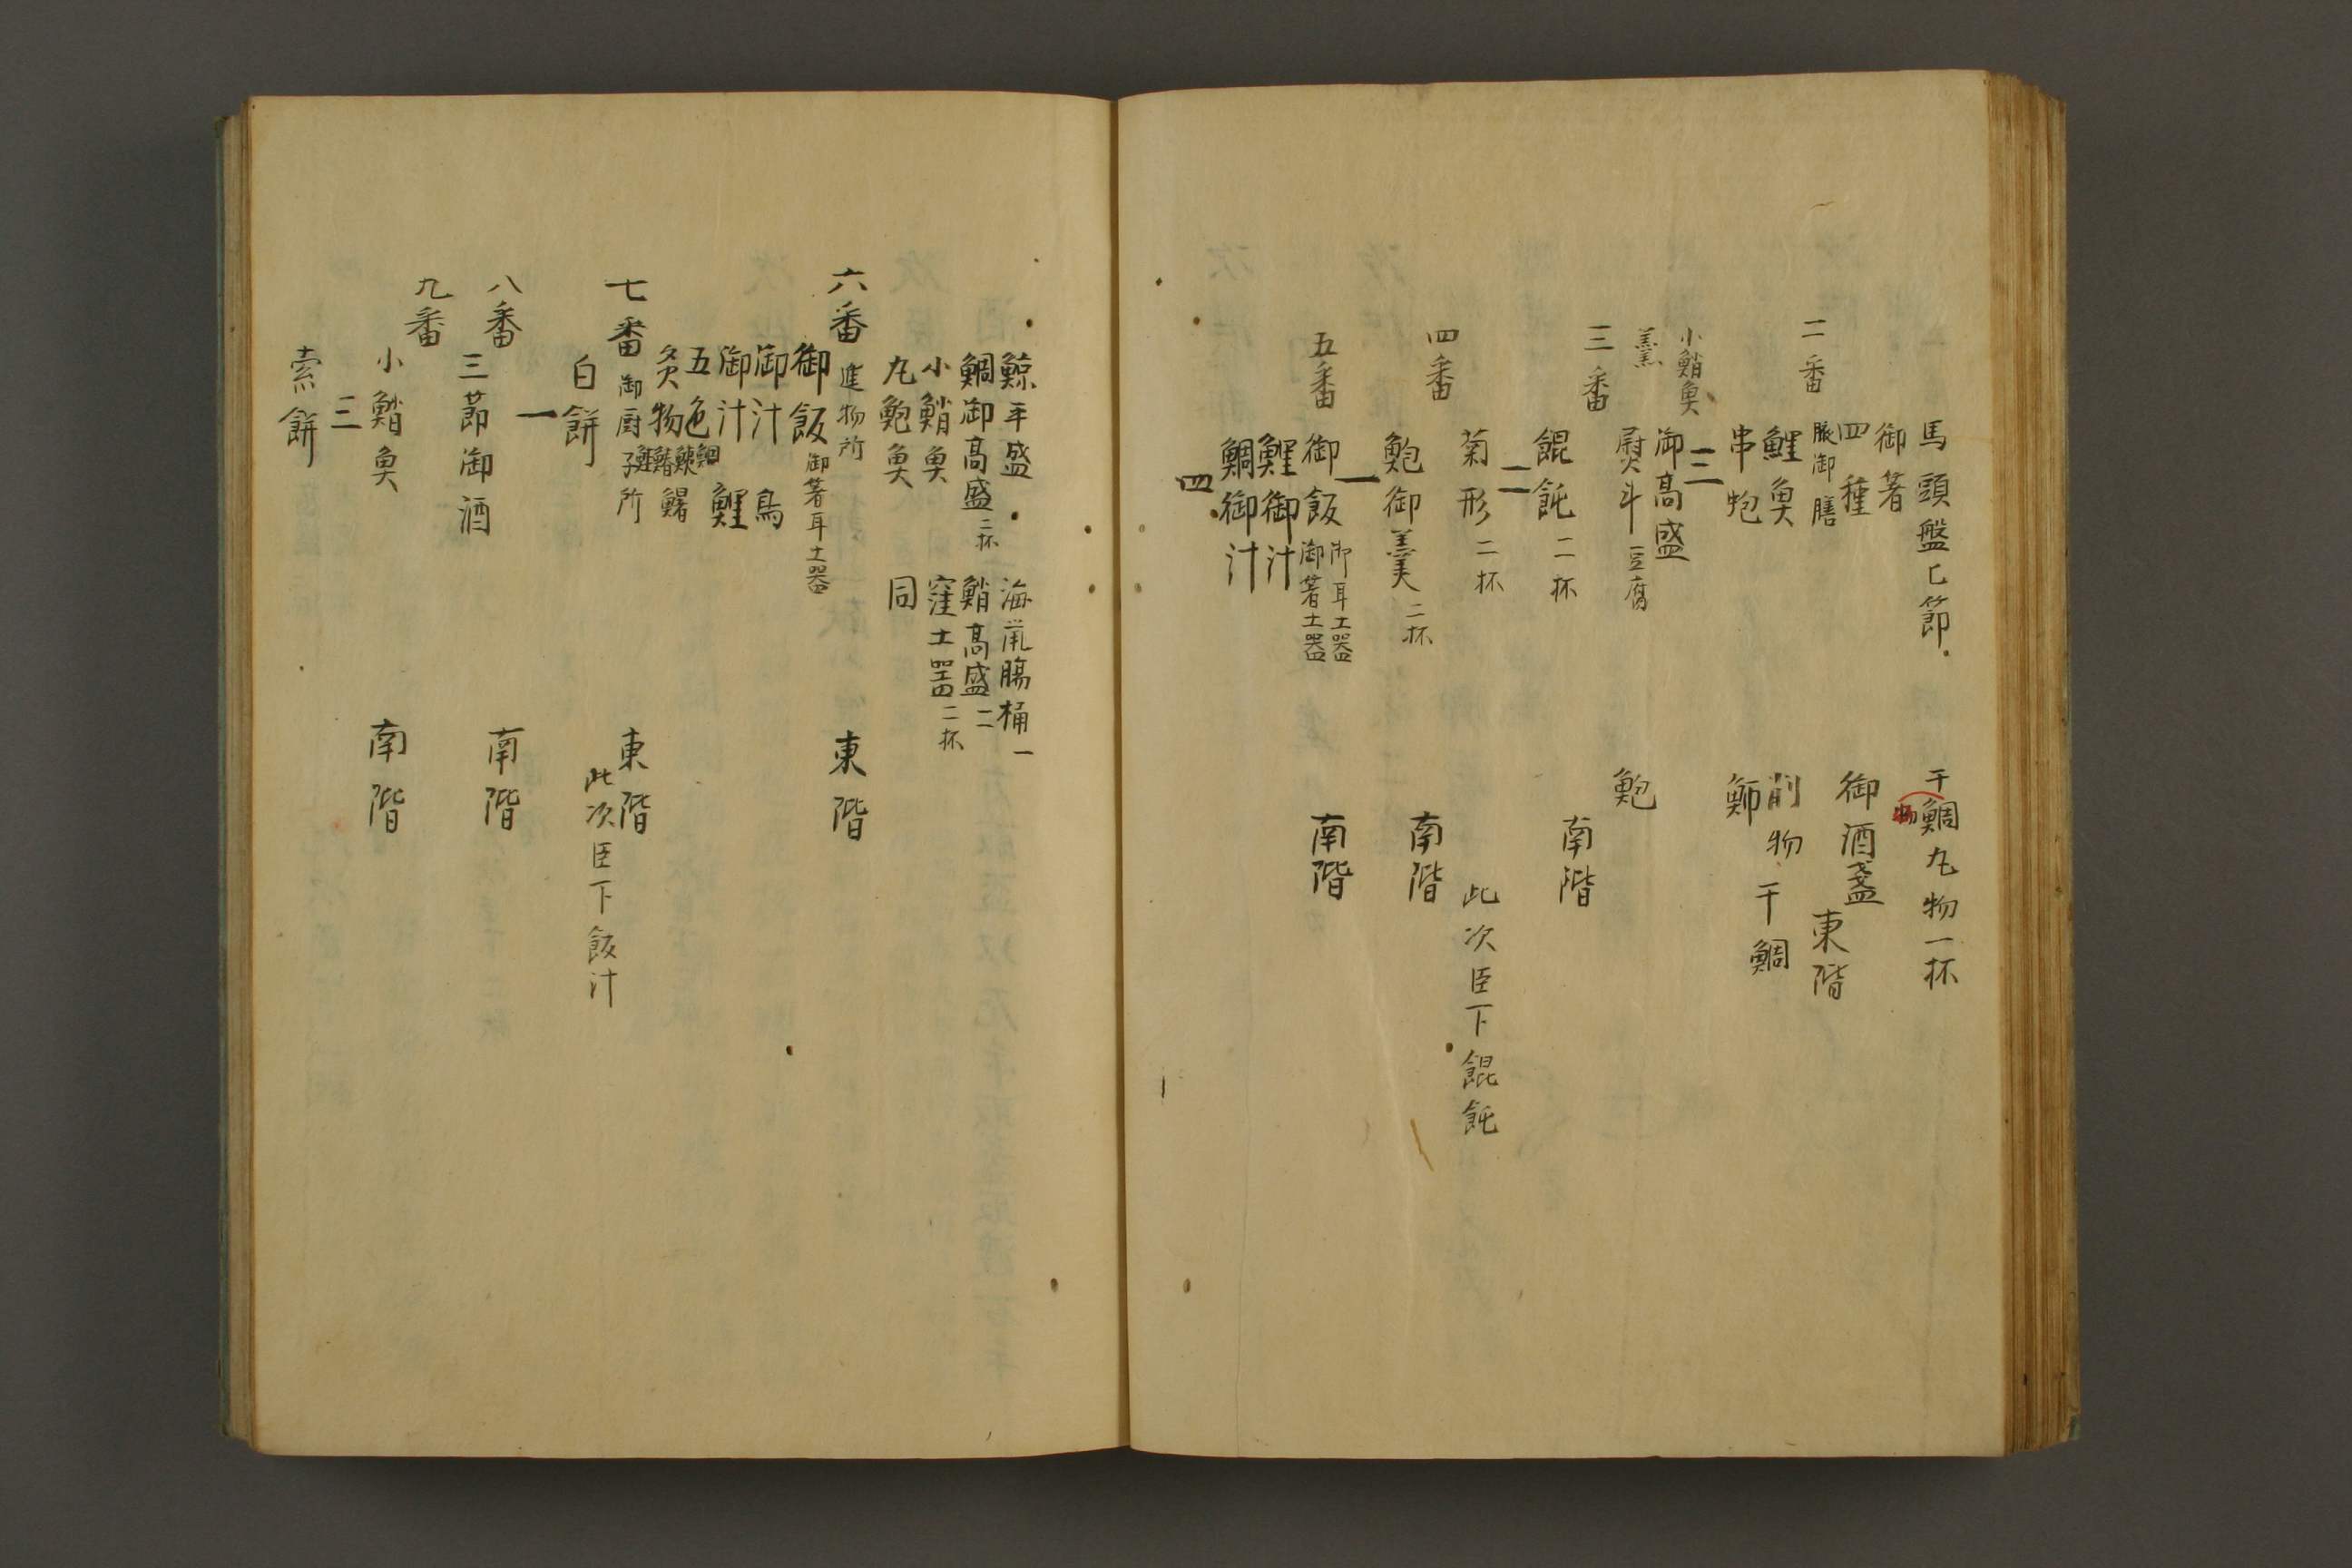 馬頭盤匕節　干鯛丸物一杯
御箸
四種　御酒盞
二番　脇御膳　東階
鯉魚　削物　干鯛
串蚫
三
小鮹魚　御高盛
羹　熨斗　豆腐　鮑
三番　南階
餛飩　二杯
二
菊形　二杯　此次臣下餛飩
四番　南階
鮑御羹　二杯
一
五番　御飯　御耳土器　御箸土器　南階
鯉御汁
鯛御汁
四
鯨平盛　海鼠腸桶一
鯛御高盛　二杯　鮹高盛二
小鮹魚　窪土器　二杯
丸鮑魚　同
六番　進物所　東階
御飯　御箸耳土器
御汁　鳥
御汁　鯉
五色
炙物
七番　御厨子所　東階
此次臣下飯汁
白餅
一
八番　南階
三節御酒
九番
小鮹魚　南階
三
索餅